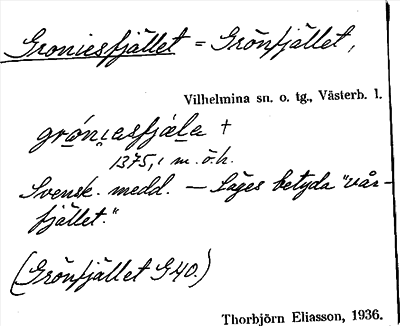 Groniesfjället = Grönfjället,
Vilhelmina sn. o. tg., Västerb. l.
grǿni̯esfjæ̀lɛ +
1375,1 m. ö. h.
Svensk. medd. — Säges betyda "vår-
fjället."
(Grönfjället G40.)
Thorbjörn Eliasson, 1936.